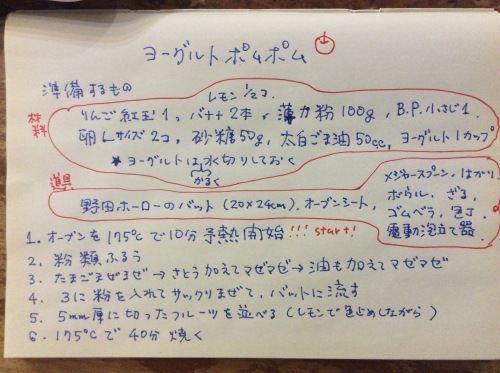 ヨーグルトポムポム
準備するもの
レモン1/2コ.
材料
りんご紅玉1, バナナ2本, 薄力粉100g, B.P.小さじ1.
卵Lサイズ2コ, 砂糖50g, 太白ごま油50cc, ヨーグルト1カップ
★ヨーグルトは水切りしておく
かるく
道具
野田ホーローのバット(20×24cm), オーブンシート,
メジャースプーン, はかり,
ボウル, ざる,
ゴムベラ, 包丁
電動泡立て器.
1. オーブンを175℃で10分予熱開始!!! start!
2. 粉類ふるう
3. たまごまぜまぜ→さとう加えてマゼマゼ→油も加えてマゼマゼ
4. 3に粉を入れてサックリまぜて, バットに流す
5. 5mm厚に切ったフルーツを並べる(レモンで色止めしながら)
6. 175℃で40分焼く